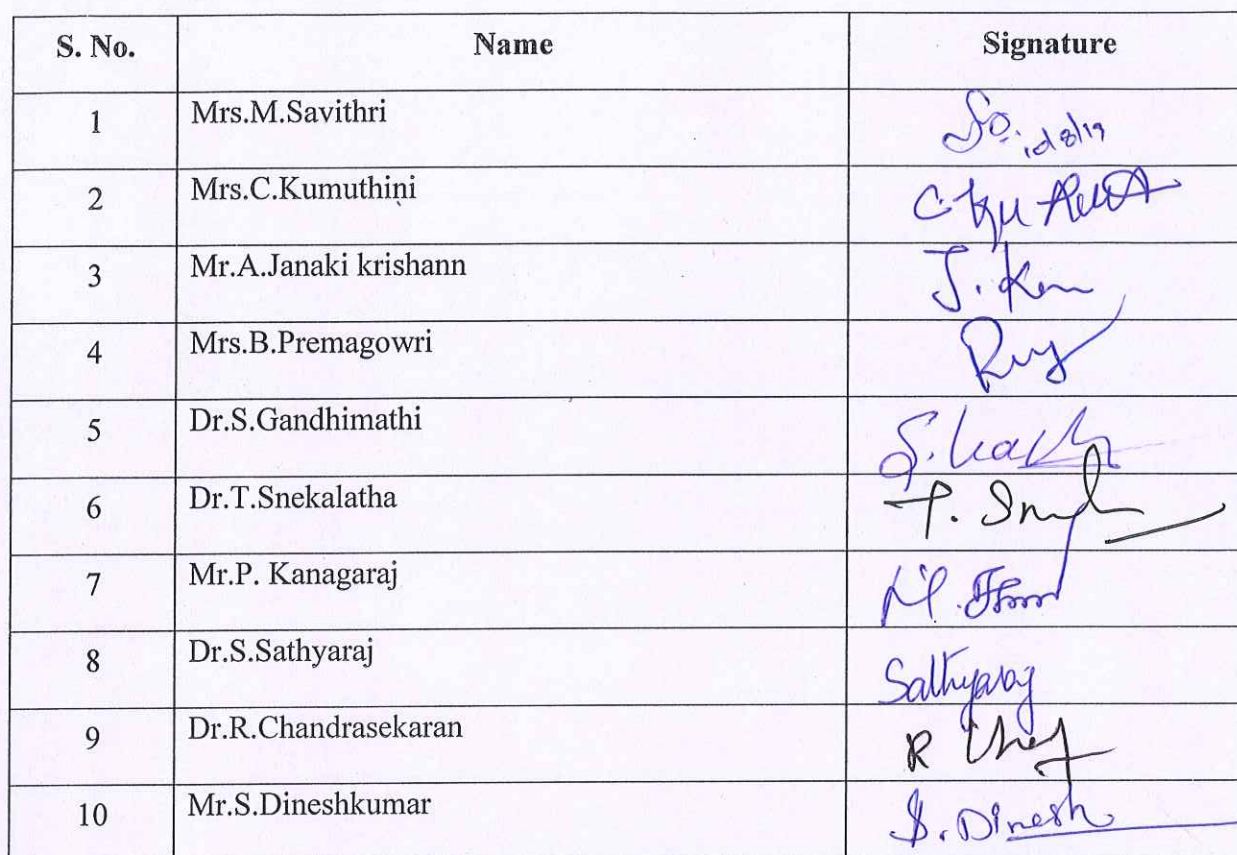 S. No. Name Signature
1 Mrs.M.Savithri
2 Mrs.C.Kumuthini
3 Mr.A.Janaki krishann J.
4 Mrs.B.Premagowri
5 Dr.S.Gandhimathi S.
6 Dr.T.Snekalatha T.
7 Mr.P. Kanagaraj
8 Dr.S.Sathyaraj Sathyaraj
9 Dr.R.Chandrasekaran R
10 Mr.S.Dineshkumar S. Dinesh